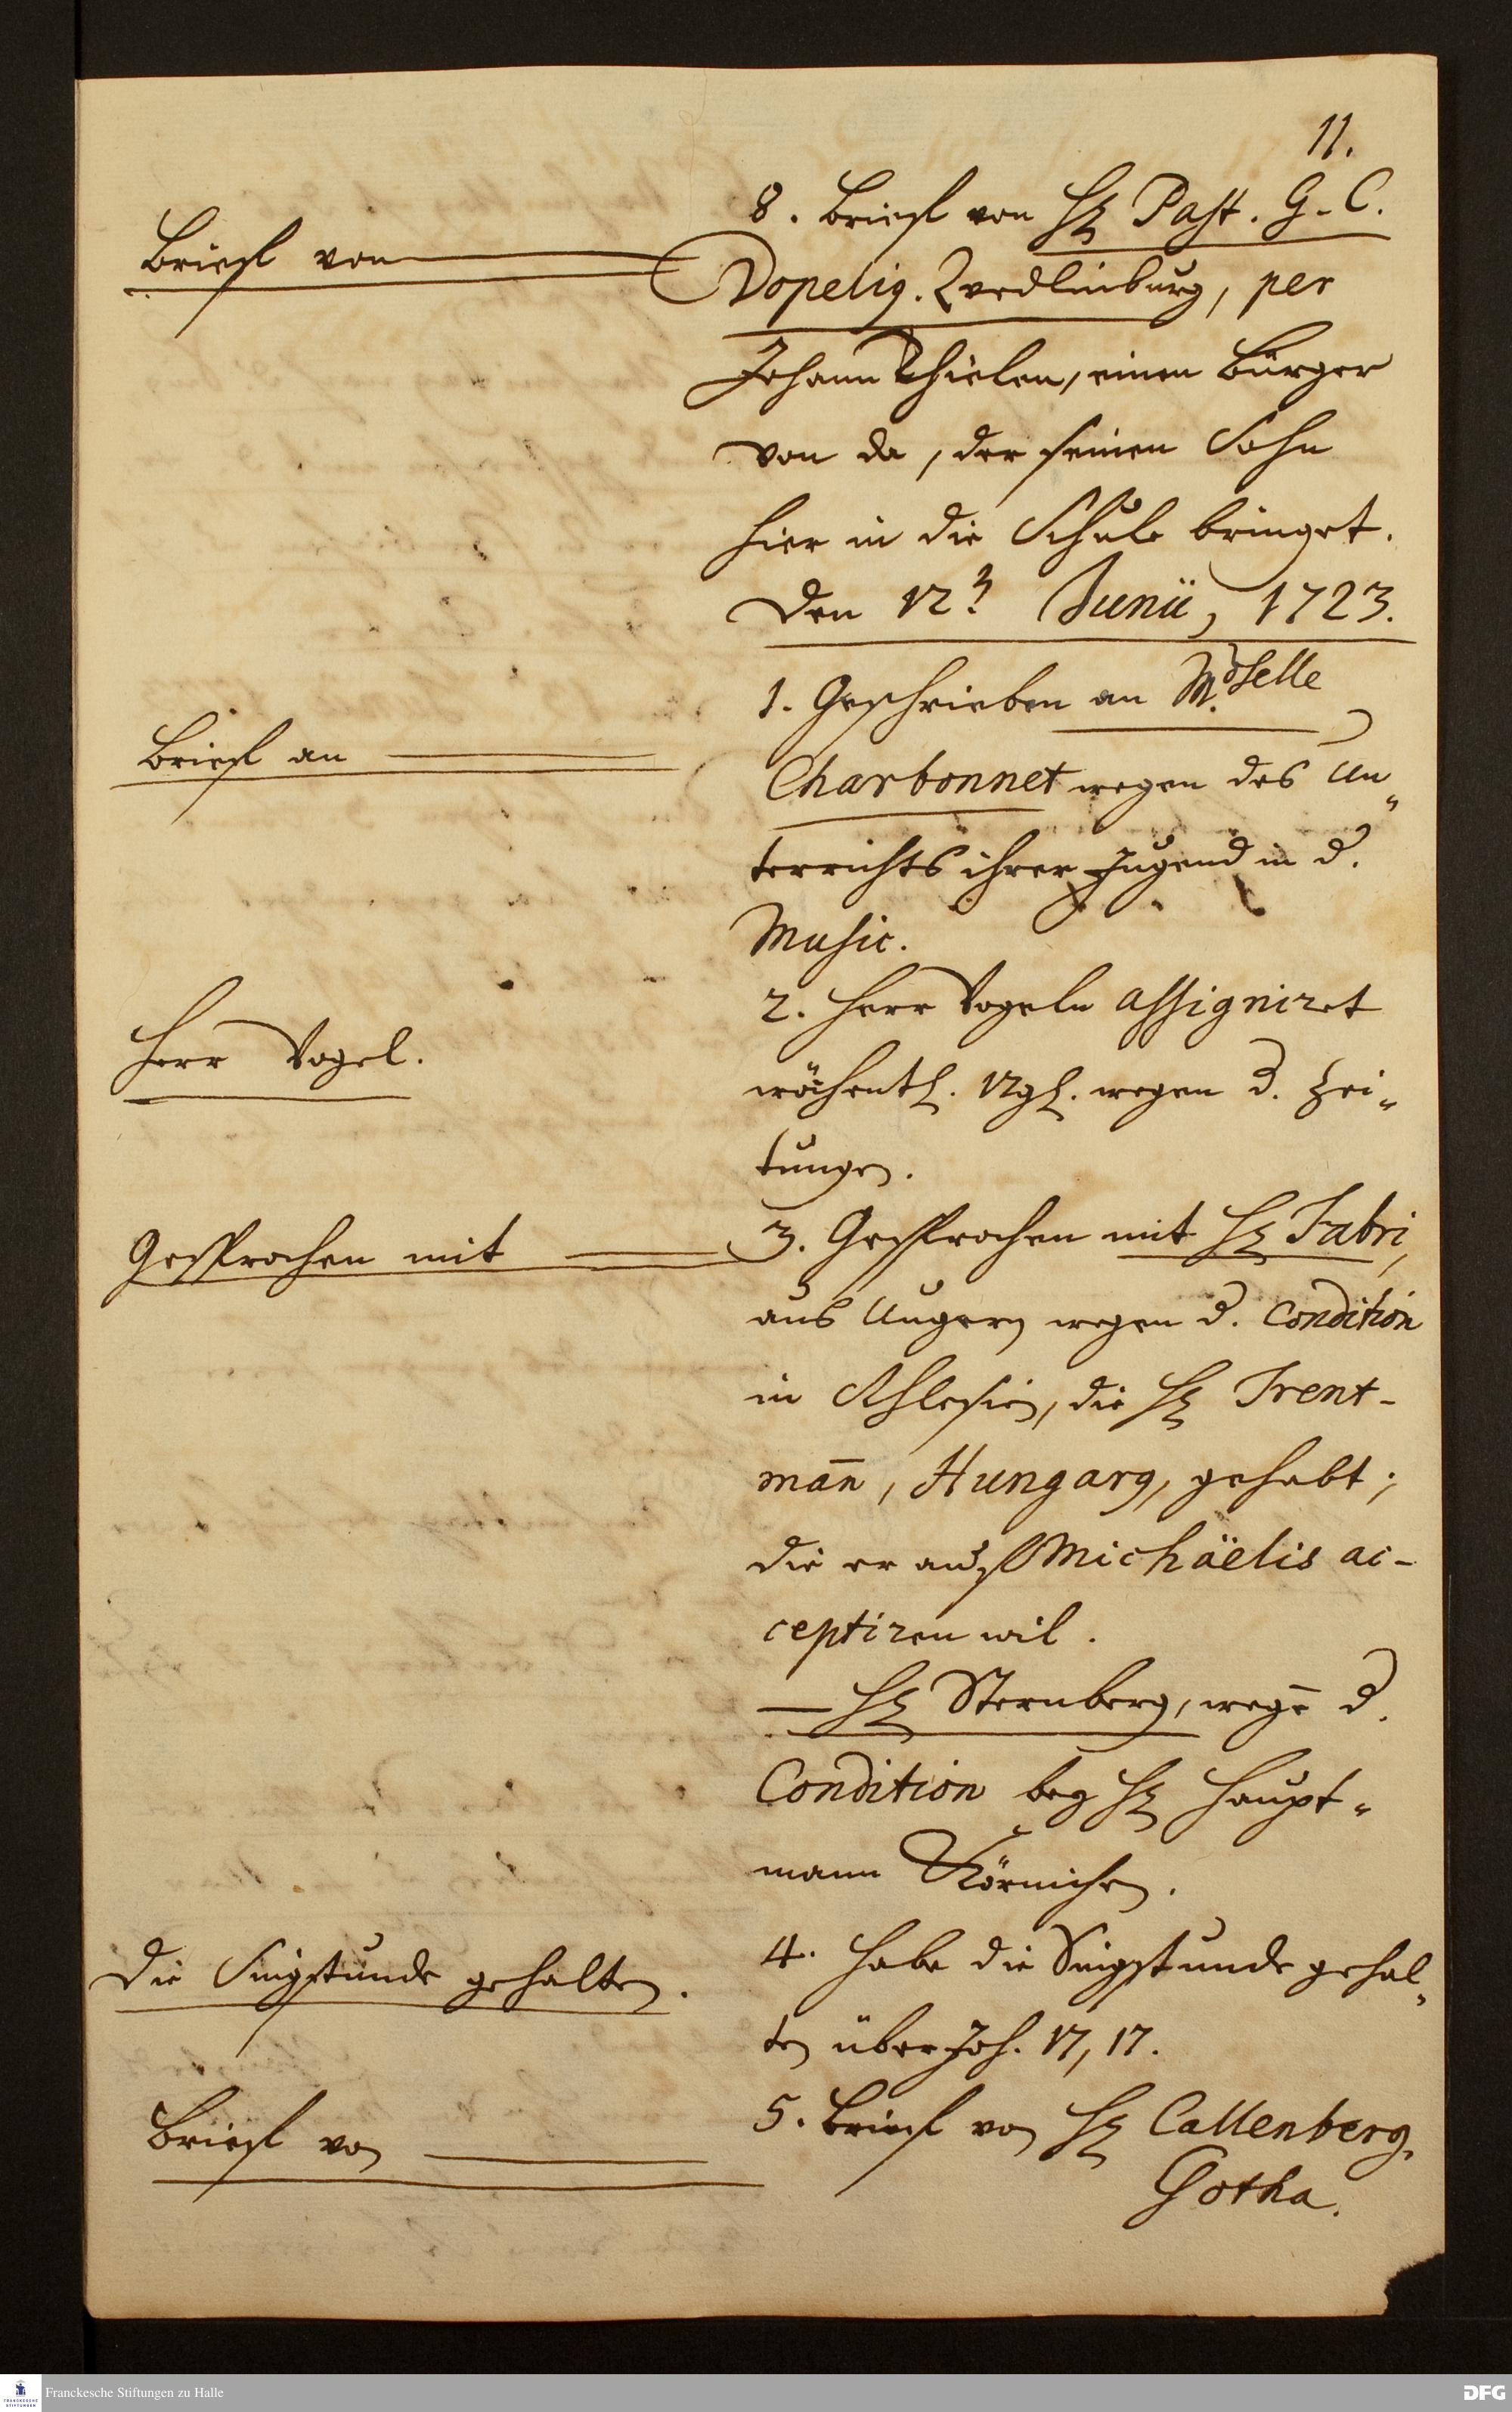 11.
Brieff von
8. Brieff von H. Past. G. C.
Dopelig. Qvedlinburg, per
Johann Thielen, einen Bürger
von da, der seinen Sohn
hier in die Schule bringet.
Den 12. Junii, 1723.
Brieff an
1. Geschrieben an Mdselle
Charbonnet wegen des Un„
terrichts ihrer Jugend in d.
Music.
Herr Vogel.
2. Herr Vogeln assigniret
wöchentl. 12 gl. wegen d. Zei„
tungen.
Gesprochen mit
3. Gesprochen mit H. Fabri,
aus Ungern wegen d. Condition
in Schlesien, die H. Trent-
mañ, Hungary, gehabt;
die er auff Michäelis ac-
ceptiren wil.
— H. Sternberg, wegē d.
Condition bey H. Haupt„
mann Körnichen.
Die Singstunde gehalten.
4. Habe die Singstunde gehal„
ten über Joh. 17, 17.
Brieff von
5. Brieff von H. Callenberg.
Gotha.
Franckesche Stiftungen zu Halle
DFG